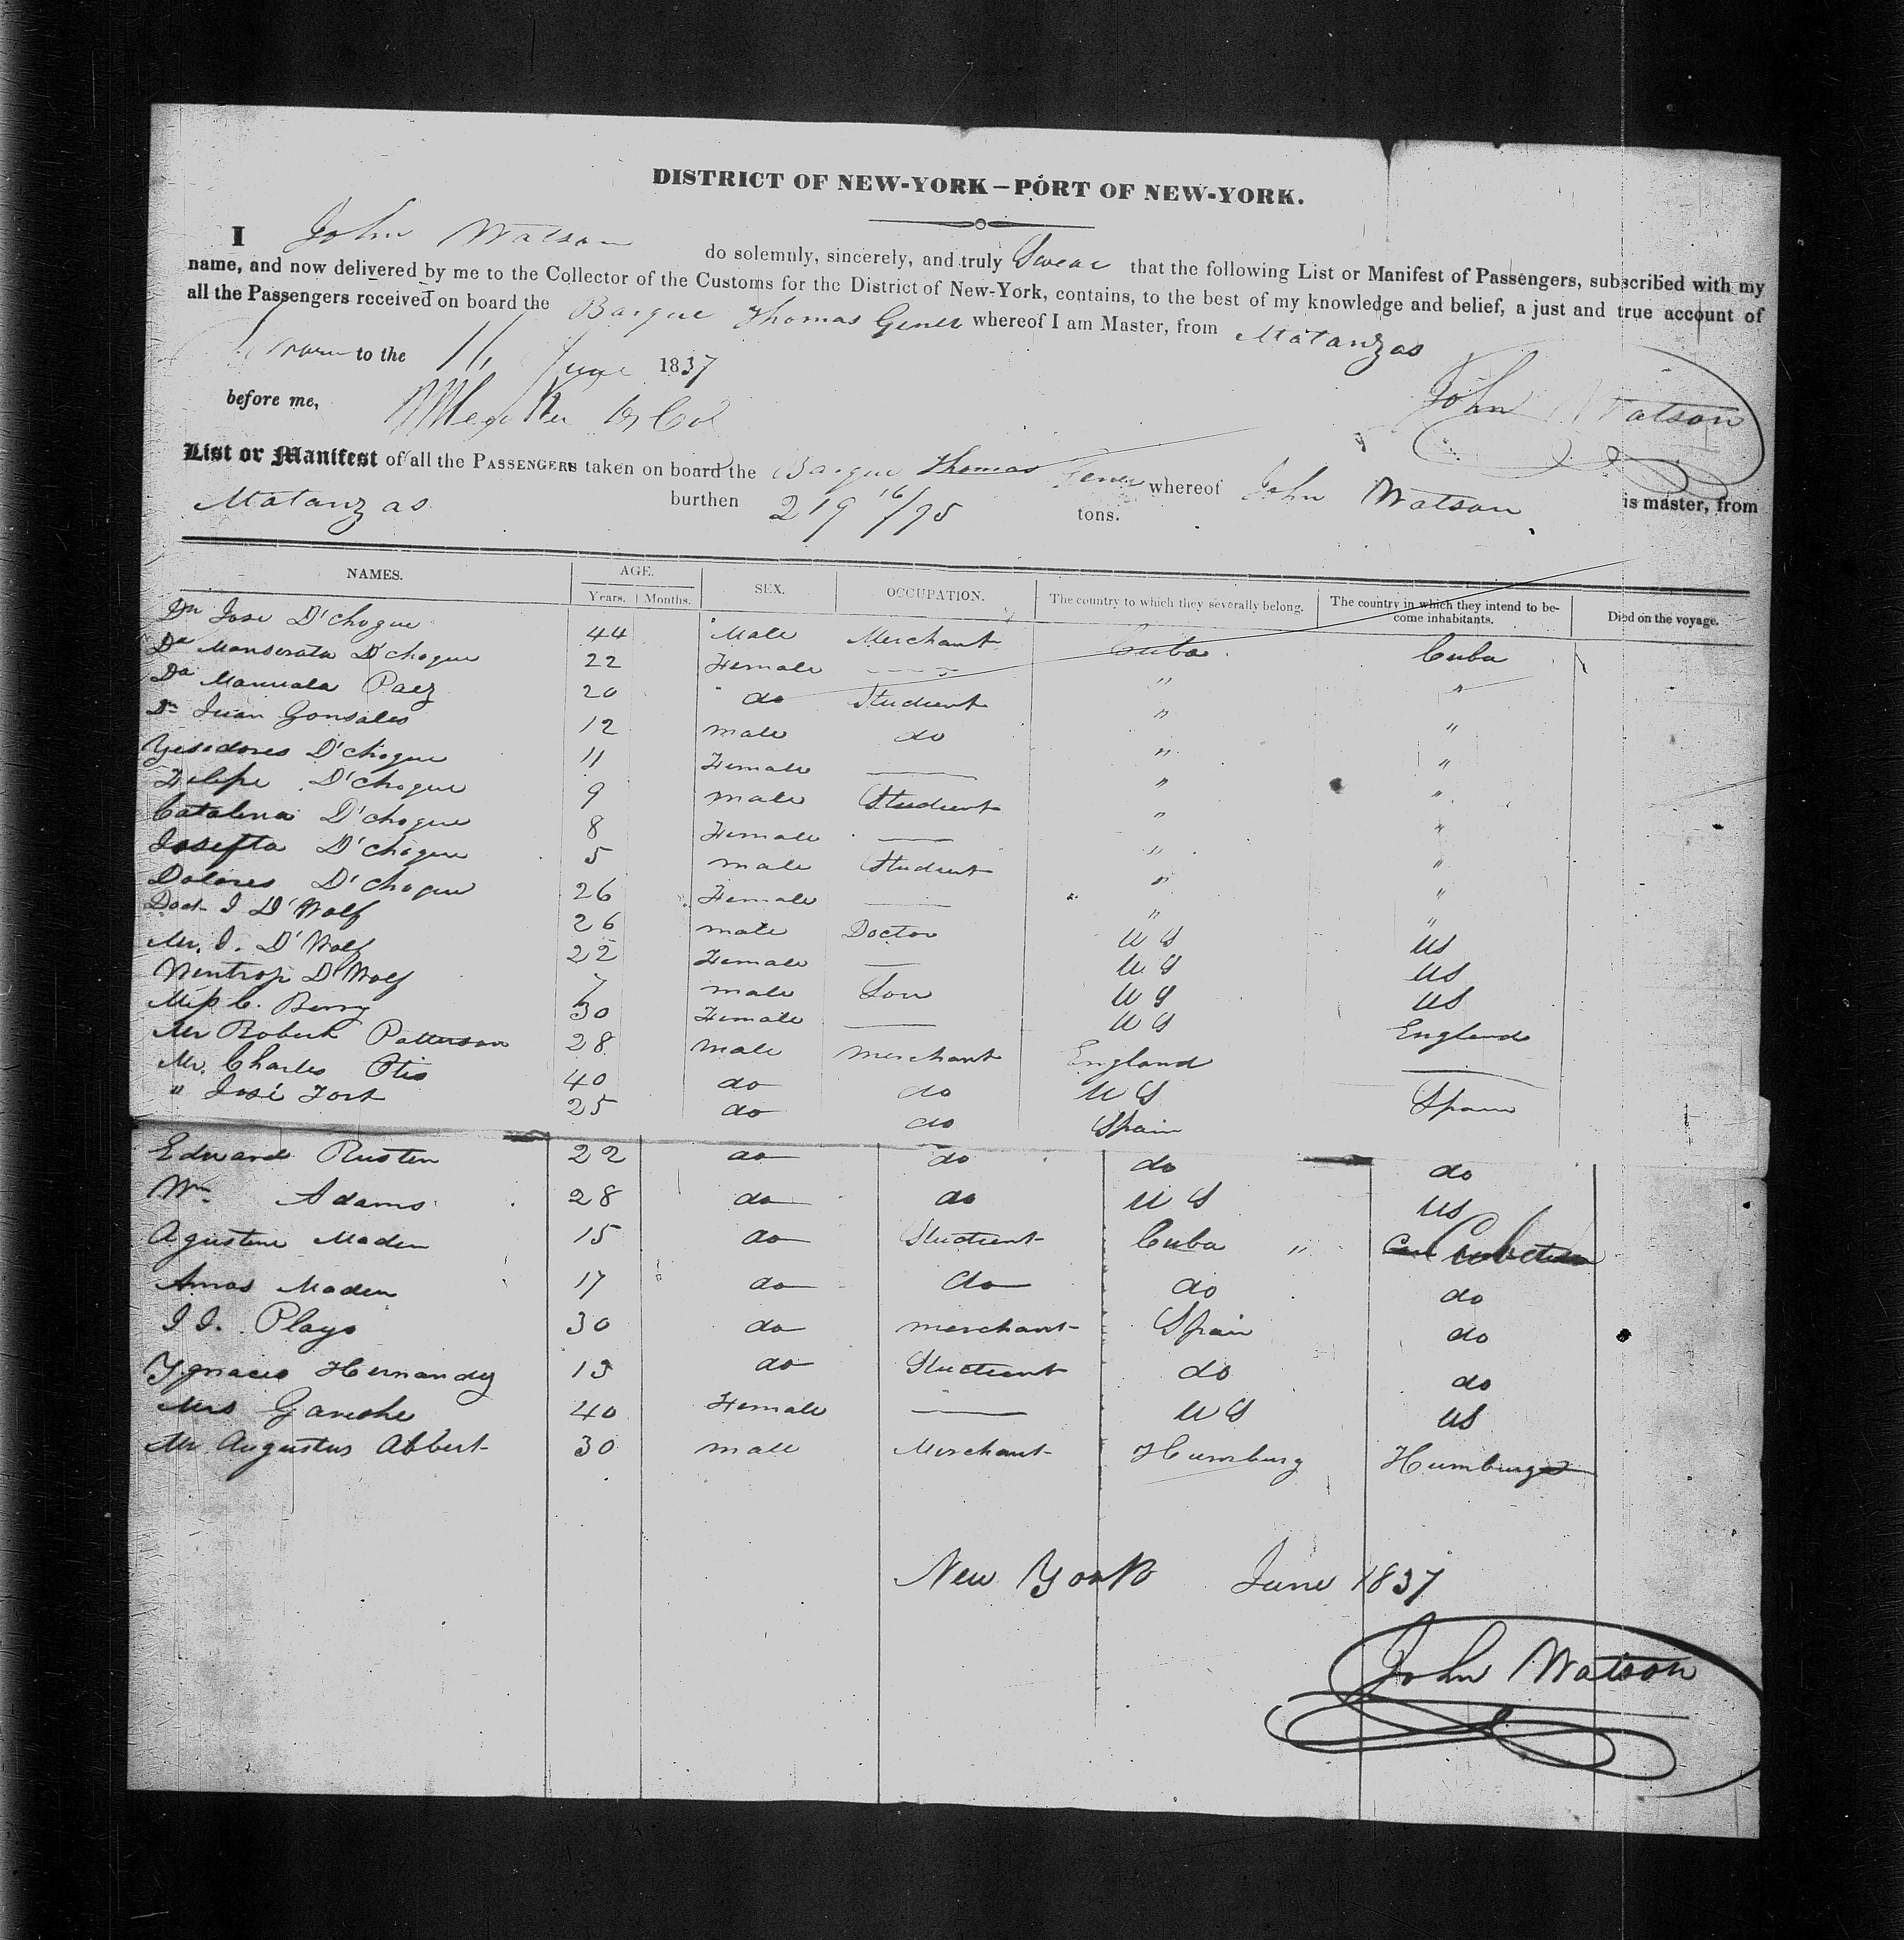 DISTRICT OF NEW-YORK—PORT OF NEW-YORK.
I John Watson do solemnly, sincerely, and truly Swear that the following List or Manifest of Passengers, subscribed with my
name, and now delivered by me to the Collector of the Customs for the District of New-York, contains, to the best of my knowledge and belief, a just and true account of
all the Passengers received on board the Barque Thomas Gener whereof I am Master, from Matanzas
Sworn to the 11 June 1837
John Watson
before me,
List or Manifest of all the PASSENGERS taken on board the Barque Thomas Gener whereof John Watson is master, from
Matanzas burthen 219 16/95 tons.
NAMES. AGE. SEX. OCCUPATION. The country to which they severally belong. The country in which they intend to become inhabitants. Died on the voyage.
Years. Months.
Dn Jose D'chogue 44 Male Merchant Cuba Cuba
Da Monserata D'chogue 22 Female — " "
Da Manuala Paez 20 do Student " "
Dn Juan Gonsales 12 male do " "
Ysedores D'chogue 11 Female — " "
Felipe D'chogue 9 male Student " "
Catalina D'chogue 8 Female — " "
Josefta D'chogue 5 male Student " "
Dolores D'chogue 26 Female — " "
Doct J D'Wolf 26 male Doctor U S US
Mr. J. D'Wolf 22 Female — U S US
Wintrop D'Wolf 7 male Son U S US
Miss C. Berry 30 Female — U S
Mr Robert Patterson 28 male merchant England England
Mr. Charles Otis 40 do do U S —
" José Fort 25 do do Spain Spain
Edward Rusten 22 do do do do
Wm Adams 28 do do U S US
Agustine Maden 15 do Student Cuba " Cuba
Amos Maden 17 do do do do
J J. Playo 30 do merchant Spain do
Ygnacio Hernandez 15 do Student do do
Mrs Ganoche 40 Female — U S US
Mr Augustus Abbert 30 male Merchant Humburg Humburg
New York June 1837
John Watson